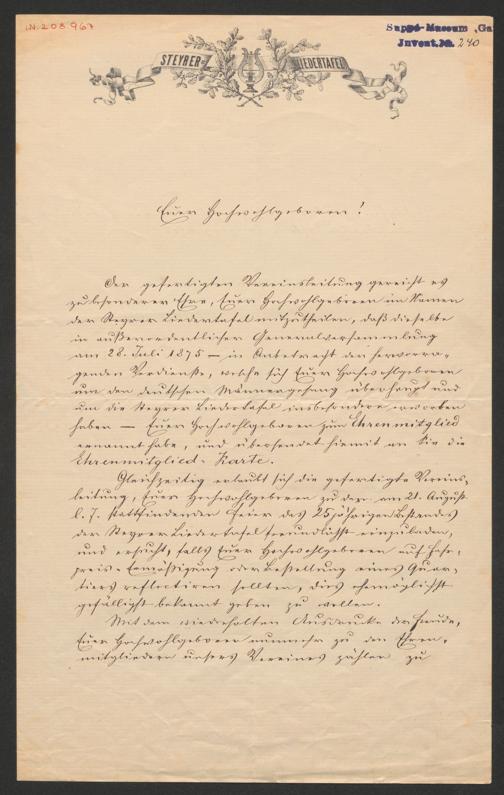 I.N. 208.967
Suppé-Museum, Ga
Invent. No. 240
STEYRER- LIEDERTAFEL
Euer Hochwohlgeboren!
Der gefertigten Vereinsleitung gereicht es
zu besonderer Ehre, Euer Hochwohlgeboren im Namen
der Steyrer Liedertafel mitzutheilen, daß dieselbe
in außerordentlicher Generalversammlung
am 28. Juli 1875 – in Anbetracht der hervorra-
genden Verdienste, welche sich Euer Hochwohlgeboren
um den deutschen Männergesang überhaupt und
um die Steyrer Liedertafel insbesondere erworben
haben – Euer Hochwohlgeboren zum Ehrenmitglied
ernannt habe, und übersendet hiemit an Sie die
Ehrenmitglied-Karte.
Gleichzeitig erlaubt sich die gefertigte Vereins-
leitung, Euer Hochwohlgeboren zu der am 21. August
l. J. stattfindenden Feier des 25jährigen Bestandes
der Steyrer Liedertafel freundlichst einzuladen,
und ersucht, falls Euer Hochwohlgeboren auf Fahr-
preis-Ermäßigung oder Bestellung eines Quar-
tiers reflectiren sollten, dies ehemöglichst
gefälligst bekannt geben zu wollen.
Mit dem wiederholten Ausdrucke der Freude,
Euer Hochwohlgeboren nunmehr zu den Ehren-
mitgliedern unsers Vereines zählen zu